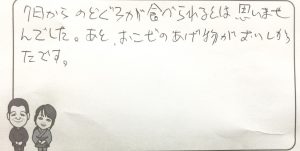 7日から のどぐろが食べられるとは思いませ
んでした。あと、おこぜのあげ物がおいしかっ
たです。